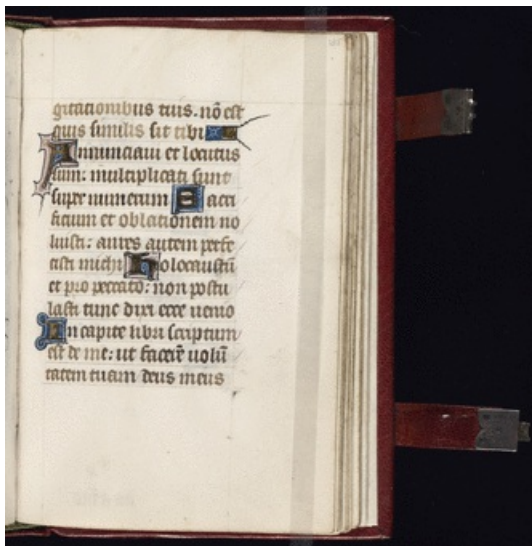 gitationibus tuis. nō est
quis similis sit tibi
Annunciaui et locutus
sum: multiplicati sunt
supr numerum Sacri
ficium et oblationem no
luisti: aures autem perfe
cisti michi Holocaustū
et pro peccato: non postu
lasti tunc dixi ecce uenio
In capite libri scriptum
est de me: ut facerē uolū
tatem tuam deus meus